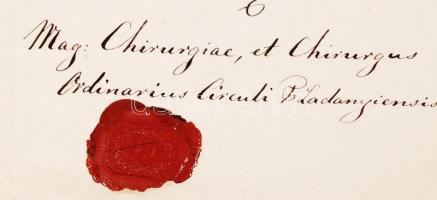 Mag: Chirurgiae, et Chirurgus
Ordinarius Circuli P Ladanyiensis